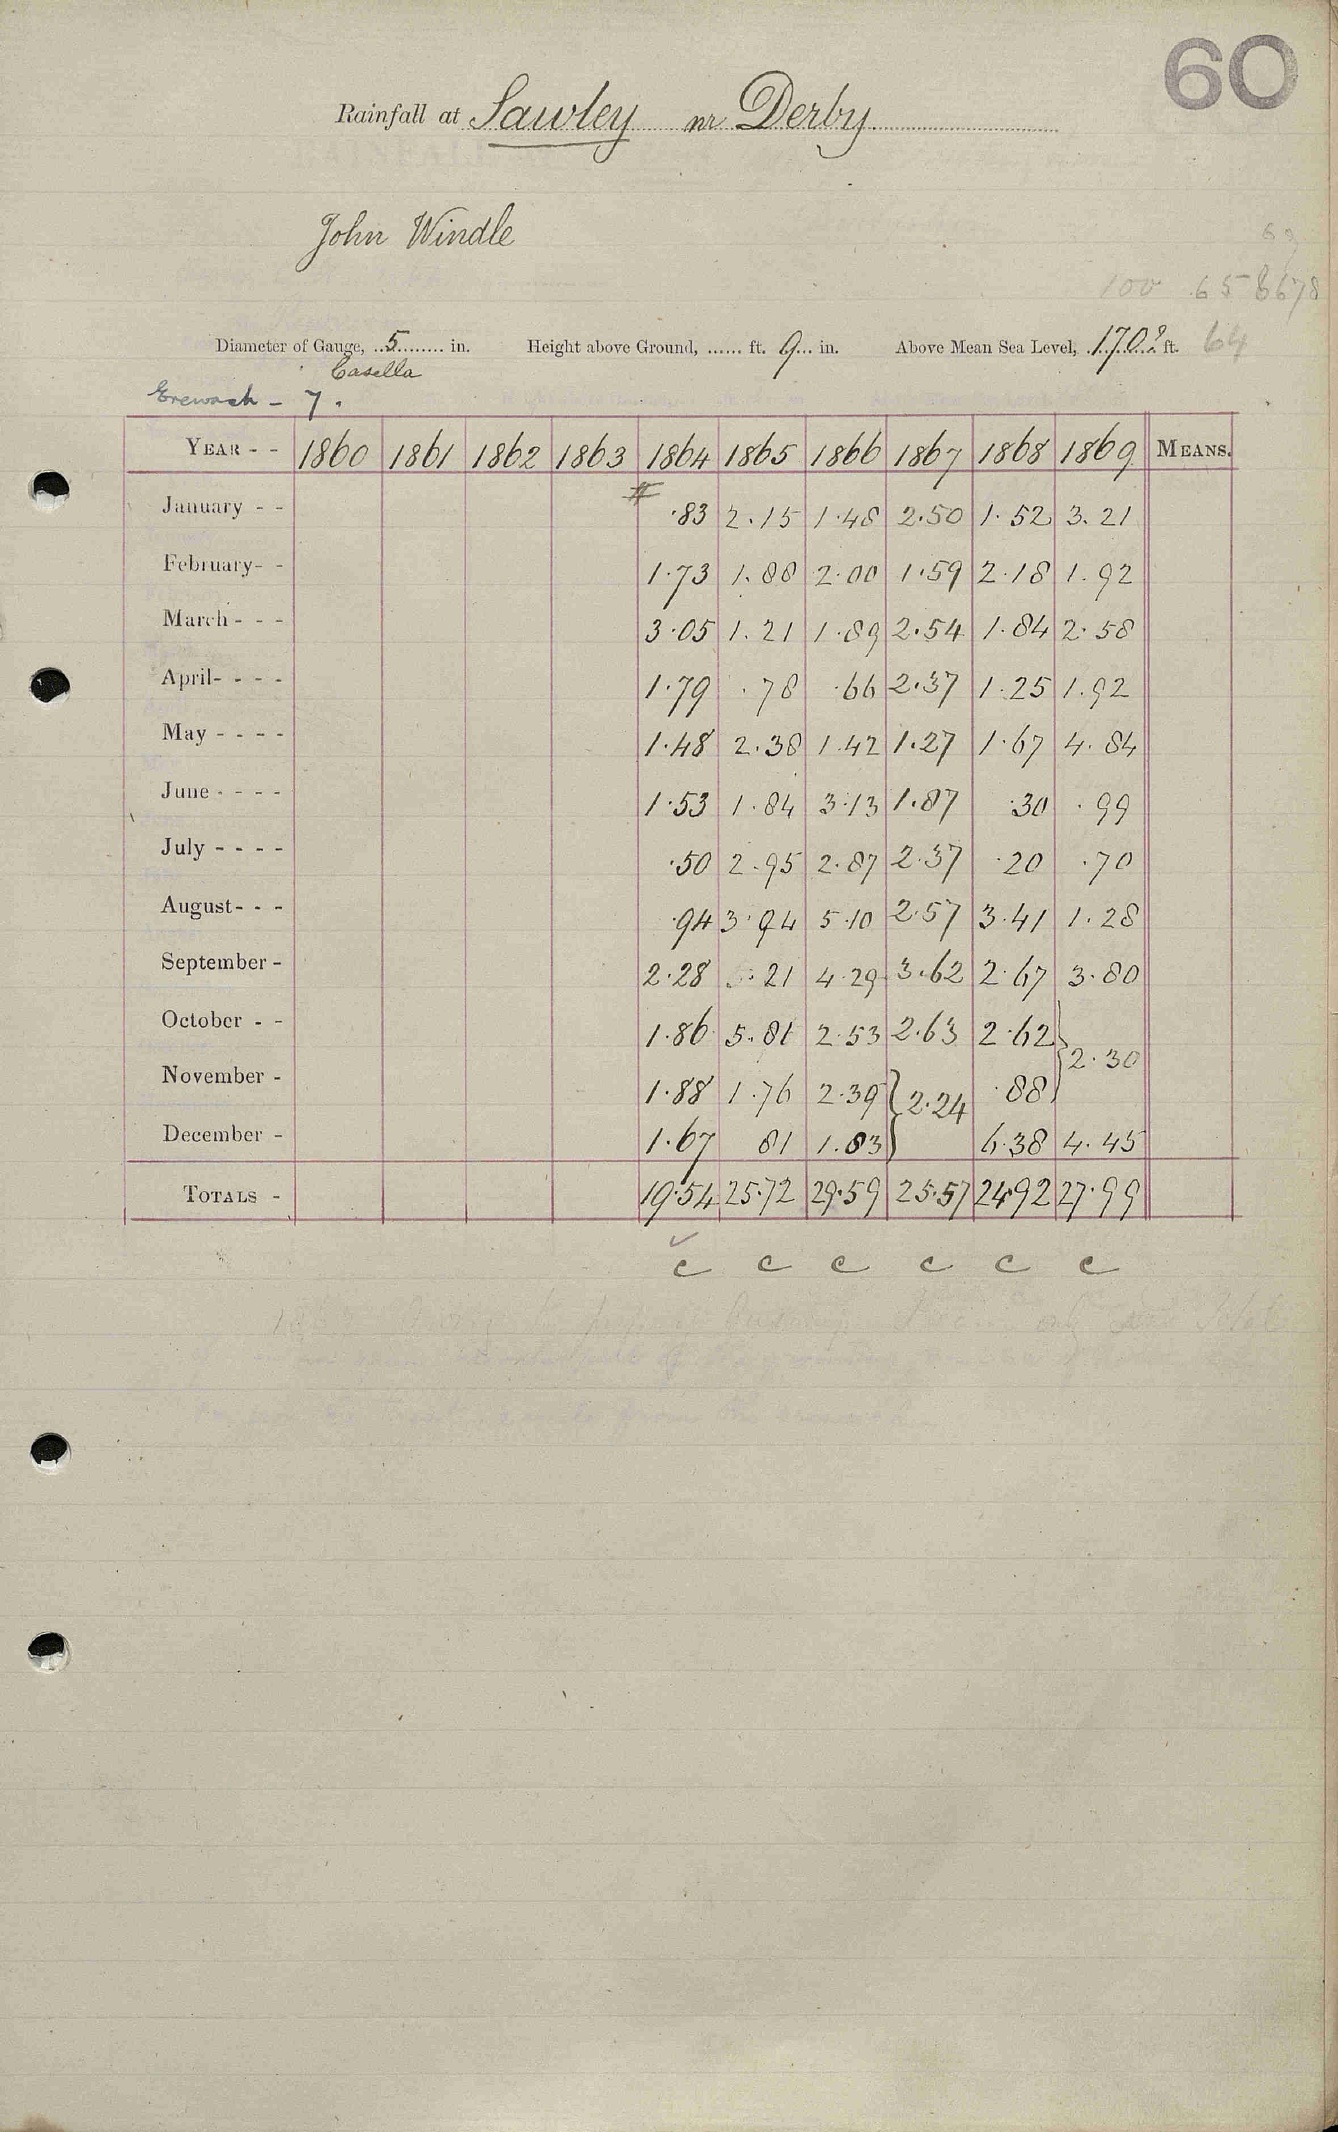 60
Rainfall at Sawley nr Derby
John Windle
100 .65 8678
Diameter of Gauge, 5 in. Height above Ground, ...... ft. 9 in. Above Mean Sea Level, 170? ft. 64
Casella
Erewash - 7.
YEAR - - 1860 1861 1862 1863 1864 1865 1866 1867 1868 1869 MEANS.
January - - #.83 2.15 1.48 2.50 1.52 3.21
February- - 1.73 1.88 2.00 1.59 2.18 1.92
March - - - 3.05 1.21 1.89 2.54 1.84 2.58
April- - - - 1.79 .78 .66 2.37 1.25 1.92
May - - - - 1.48 2.38 1.42 1.27 1.67 4.84
June - - - - 1.53 1.84 3.13 1.87 .30 .99
July - - - - .50 2.95 2.87 2.37 .20 .70
August- - - .94 3.94 5.10 2.57 3.41 1.28
September - 2.28 .21 4.29 3.62 2.67 3.80
October - - 1.86 5.81 2.53 2.63 2.62 } 2.30
November - 1.88 1.76 2.39 } 2.24 .88
December - 1.67 81 1.83 6.38 4.45
TOTALS - 19.54 25.72 29.59 25.57 24.92 27.99
c c c c c c